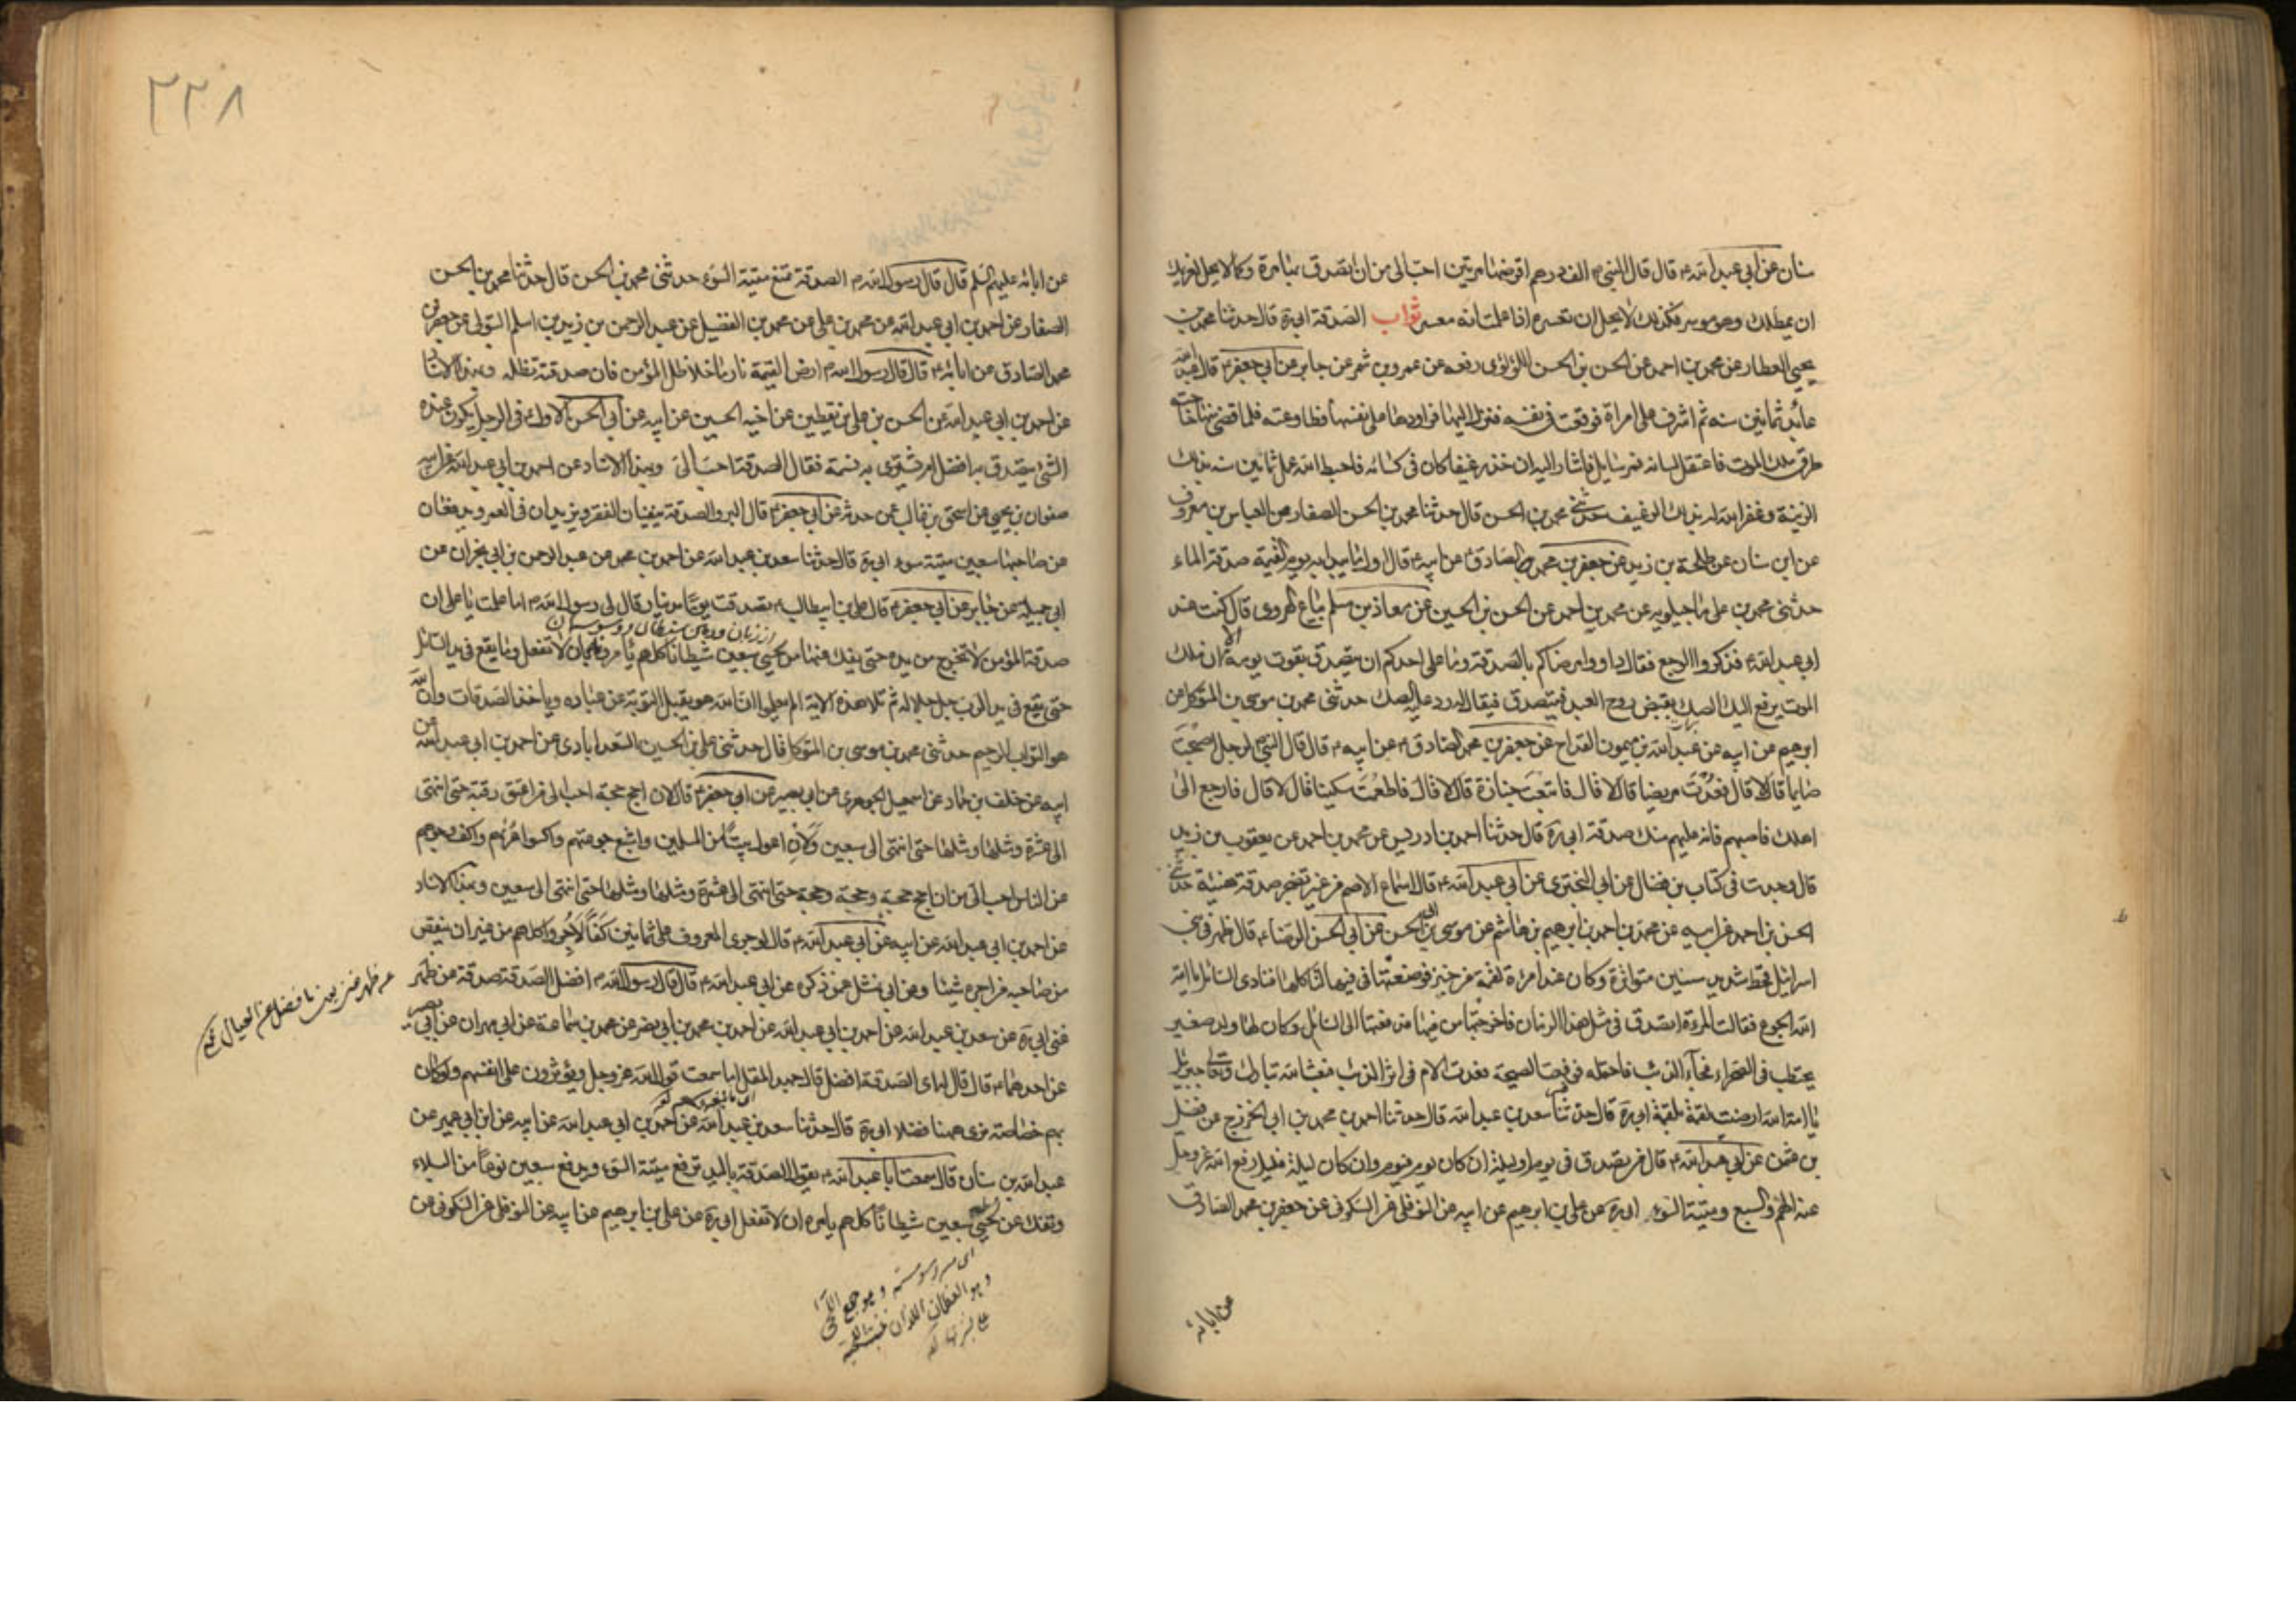 سنان عن ابي عبد الله ع قال قال النبي ص الف درهم اقرضها مرتين احب الي من ان اتصدق بها مرة وكما لا يحل لغريمك
ان يمطلك وهو موسر فكذلك لا يحل لك ان تعسره اذا علمت انه معسر ثواب الصدقة ابي ره قال حدثنا محمد بن
يحيى العطار عن محمد بن احمد عن الحسن بن الحسن اللؤلؤي رفعه عن عمرو بن شمر عن جابر عن ابي جعفر ع قال عبد الله
عابد ثمانين سنة ثم اشرف على امراة فوقعت في نفسه فنزل اليها فراودها على نفسها فطاوعته فلما قضى منها حاجته
طرقه ملك الموت فاعتقل لسانه فمر سايل فاشار اليه ان خذ رغيفا كان في كسائه فاحبط الله عمل ثمانين سنة بتلك
الزنية وغفر الله له بذلك الرغيف حدثني محمد بن الحسن قال حدثنا محمد بن الحسن الصفار عن العباس بن معروف
عن ابن سنان عن طلحة بن زيد عن جعفر بن محمد الصادق ع عن ابيه ع قال اول ما يبدا به يوم القيمة صدقة الماء
حدثني محمد بن علي ماجيلويه عن محمد بن احمد عن الحسن بن الحسين عن معاذ بن مسلم بياع الهروي قال كنت عند
ابي عبد الله ع فذكروا الوجع فقال داووا مرضاكم بالصدقة وما على احدكم ان يتصدق بقوت يومه ان ملك
الموت يدفع اليه الصك بقبض روح العبد فيتصدق فيقال له رد عليه الصك حدثني محمد بن موسى بن المتوكل عن
ابرهيم عن ابيه عن عبد الله بن ميمون القداح عن جعفر بن محمد الصادق ع عن ابيه ع قال قال النبي ص لرجل اصبحت
صايما قال لا قال فعدت مريضا قال لا قال فاتبعت جنازة قال لا قال فاطعمت مسكينا قال لا قال فارجع الى
اهلك فاصبهم فانه عليهم منك صدقة ابي ره قال حدثنا احمد بن ادريس عن محمد بن احمد عن يعقوب بن يزيد
قال وجدت في كتاب بن فضال عن ابي البختري عن ابي عبد الله ع قال اسماع الاصم من غير تضجر صدقة هنيئة حدثني
الحسن بن احمد عن ابيه عن محمد بن احمد بن ابرهيم بن هاشم عن موسى بن ابي الحسن عن ابي الحسن الرضا ع قال ظهر في بني
اسرائيل قحط شديد سنين متواترة وكان عند امرءة لقمة من خبز فوضعتها في فيها لتاكلها فنادى السائل يا امة
الله الجوع فقالت المرءة اتصدق في مثل هذا الزمان فاخرجتها من فيها فدفعتها الى السائل وكان لها ولد صغير
يحتطب في الصحراء فجاء الذئب فاحتمله فوقعت الصيحة فعدت الام في اثر الذئب فبعث الله تبارك وتعالى جبرئيل
يا امة الله ارضيت لقمة بلقمة ابي ره قال حدثنا سعد بن عبد الله قال حدثنا احمد بن محمد بن ابي الخزرج عن فضيل
بن عثمن عن ابي عبد الله ع قال من تصدق في يوم او ليلة ان كان يوم فيوم وان كان ليلة فليل دفع الله عز وجل
عنه الهدم والسبع وميتة السوء ابي ره عن علي بن ابرهيم عن ابيه عن النوفلي عن السكوني عن جعفر بن محمد الصادق
عن ابائه
٢٢٨
عن ابائه عليهم السلم قال قال رسول الله ص الصدقة تمنع ميتة السوء حدثني محمد بن الحسن قال حدثنا محمد بن الحسن
الصفار عن احمد بن ابي عبد الله عن محمد بن علي عن محمد بن الفضيل عن عبد الرحمن بن زيد بن اسلم التنولي عن جعفر بن
محمد الصادق عن ابائه ع قال قال رسول الله ص ارض القيمة نار ما خلا ظل المؤمن فان صدقته تظله وبهذا الاسناد
عن احمد بن ابي عبد الله عن الحسن بن علي بن يقطين عن اخيه الحسين عن ابيه عن ابي الحسن الاول ع في الرجل يكون عنده
الشئ يتصدق به افضل ام يشتري به نسمة فقال الصدقة احب الي وبهذا الاسناد عن احمد بن ابي عبد الله عن ابيه
صفوان بن يحيى عن اسحق بن غالب عن حدثه عن ابي جعفر ع قال البر والصدقة ينفيان الفقر ويزيدان في العمر ويدفعان
عن صاحبها سبعين ميتة سوء ابي ره قال حدثنا سعد بن عبد الله عن احمد بن محمد عن عبد الرحمن بن ابي نجران عن
ابي جميله عن جابر عن ابي جعفر ع قال علي بن ابيطالب ع تصدقت يوما بدينار فقال لي رسول الله ص اما علمت يا علي ان
صدقة المؤمن لا تخرج من يده حتى يفك عنها من لحيي سبعين شيطانا كلهم يامره بان لا تفعل وما يقع في يد السائل
حتى يقع في يد الرب جل جلاله ثم تلا هذه الاية الم يعلموا ان الله هو يقبل التوبة عن عباده وياخذ الصدقات وان الله
هو التواب الرحيم حدثني محمد بن موسى بن المتوكل قال حدثني علي بن الحسين السعدابادي عن احمد بن ابي عبد الله عن
ابيه عن خلف بن حماد عن اسمعيل الجوهري عن ابي بصير عن ابي جعفر ع قال لان احج حجة احب الي من اعتق رقبة حتى انتهى
الى عشرة ومثلها ومثلها حتى انتهى الى سبعين ولان اعول بيتا من المسلمين واشبع جوعتهم واكسوا عريهم واكف وجوههم
عن الناس احب الي من ان احج حجة وحجة وحجة حتى انتهى الى عشرة ومثلها ومثلها حتى انتهى الى سبعين وبهذا الاسناد
عن احمد بن ابي عبد الله عن ابيه عن ابي عبد الله ع قال لو جرى المعروف على ثمانين كفا لاجروا كلهم من غير ان ينقص
من صاحبه من اجره شيئا وعن ابي نهشل عمن ذكره عن ابي عبد الله ع قال قال رسول الله ص افضل الصدقة صدقة عن ظهر
غنى ابي ره عن سعد بن عبد الله عن احمد بن ابي عبد الله عن احمد بن محمد بن ابي نصر عن محمد بن سماعة عن ابي مهران عن ابي بصير
عن احدهما ع قال قال له اي الصدقة افضل قال جهد المقل اما سمعت قول الله عز وجل ويؤثرون على انفسهم ولو كان
بهم خصاصة ترى ههنا فضلا ابي ره قال حدثنا سعد بن عبد الله عن احمد بن ابي عبد الله عن ابيه عن ابن ابي عمير عن
عبد الله بن سنان قال سمعت ابا عبد الله ع يقول الصدقة باليد تدفع ميتة السوء وتدفع سبعين نوعا من البلاء
وتفك عن لحيي سبعين شيطانا كلهم يامره ان لا تفعل ابي ره عن علي بن ابرهيم عن ابيه عن النوفلي عن السكوني عن